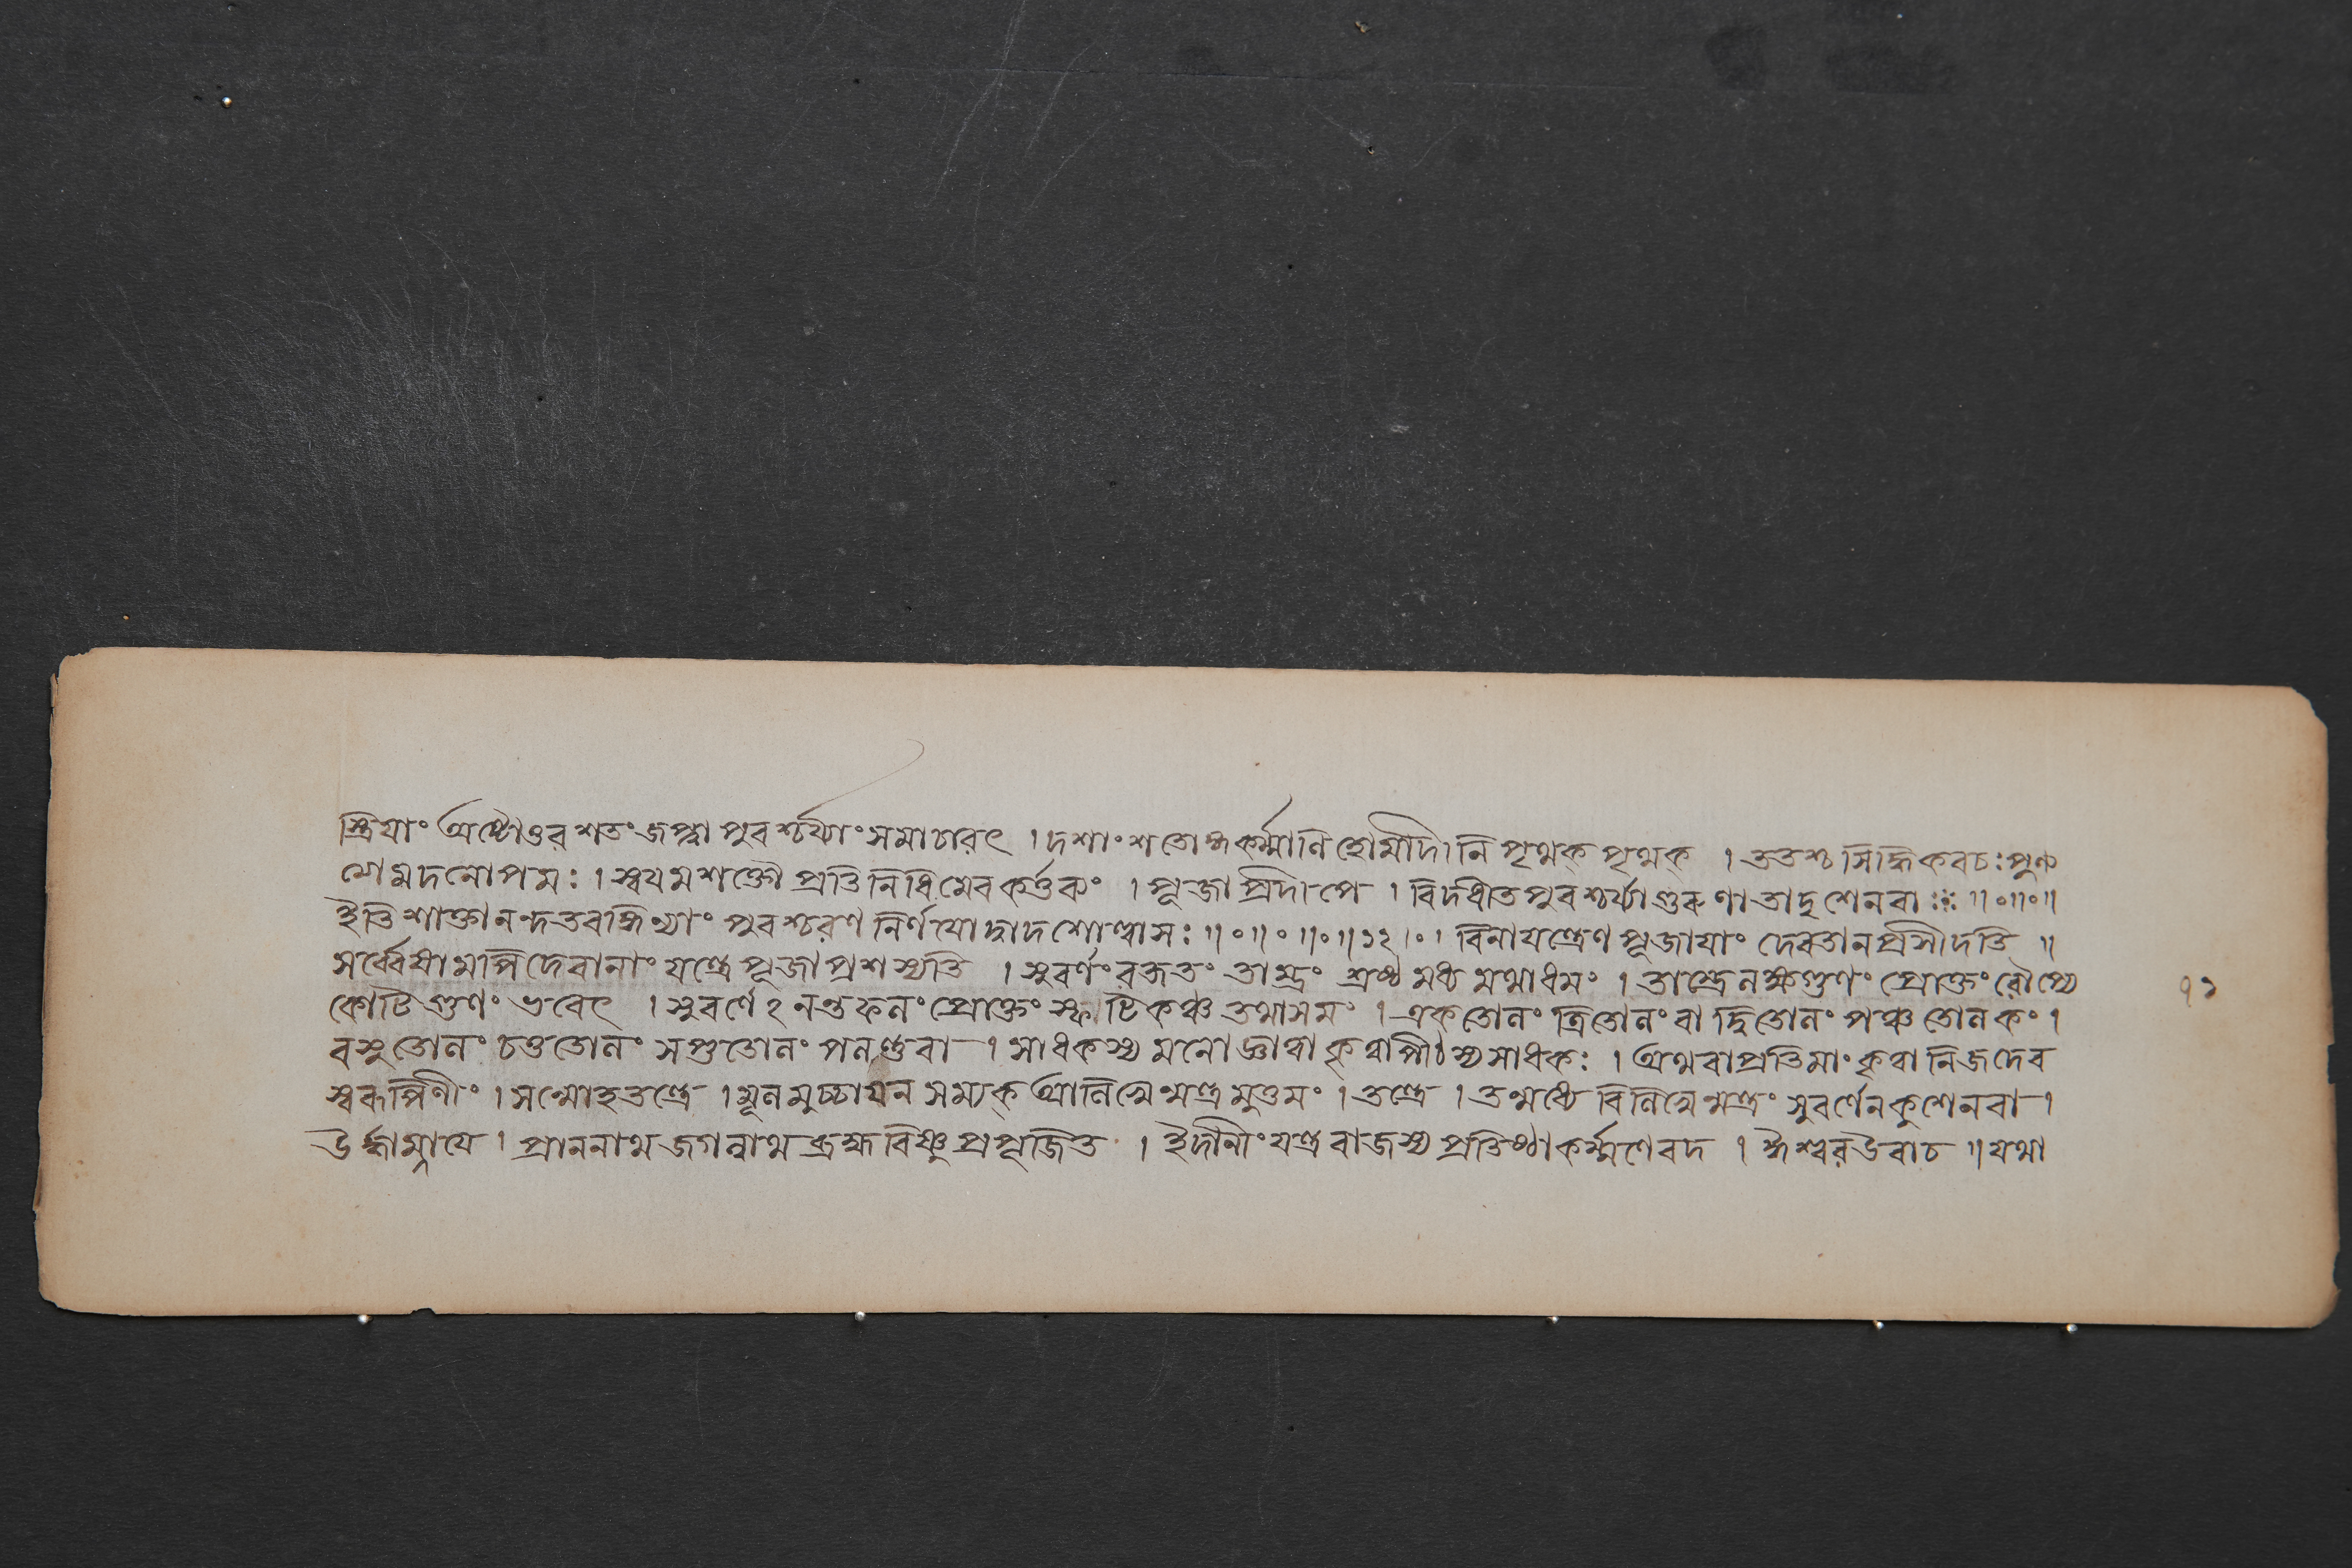 স্ত্রিযাং অষ্টোত্তর শতং জপ্ত্বা পুরশ্চর্য্যাং সমাচারৎ । দশাংশতোহ্মকর্ম্মাণি হোমাদীনি পৃথক্ পৃথক্ । ততশ্চ সিদ্ধি কবচঃ পুণ্য
গে মদনোপমঃ । স্বযমশক্তৌ প্রতিনিধিমেব কর্ত্তুকং । পূজা প্রদীপে । বিদধীত পুরশ্চর্য্যা গুরুণা তাদৃশেন বা ঃ॥০॥০॥
ইতি শাক্তানন্দতরঙ্গিণ্যাং পুরশ্চরণ নির্ণযো দ্বাদশোল্লাসঃ ॥০॥০॥০॥১২।০। বিনা যন্ত্রেণ পূজাযাং দেবতা ন প্রসীদতি ॥
সর্ব্বেষামপি দেবানাং যন্ত্রে পূজা প্রশস্যতি । সুবর্ণং রজতং তাম্রং শ্রেষ্ঠ মধ্য মথাধমং । তাম্রে লক্ষগুণং প্রোক্তং রৌপ্যে
কোটি গুণং ভবেৎ । সুবর্ণেঽনন্তফলং প্রোক্তং স্ফাটিকঞ্চ তথাসমং । একতোলং ত্রিতোলং বা দ্বিতোলং পঞ্চ তোলকং ।
বসুতোলং চতুতোলং সপ্ততোলং পলন্তুবা । সাধকস্য মনো জ্ঞাত্বা কৃত্বা পীঠস্য সাধকঃ । অথবা প্রতিমাং কৃত্বা নিজদেব
স্বরূপিণীং । সন্মোহতন্ত্রে । মূলমুচ্চার্যন সম্যক্ আনিখেন্মন্ত্রমুত্তমং । তন্ত্রে । তন্মধ্যে বিনিখেন্মন্ত্রং সুবর্ণেন কুশেন বা ।
ঊর্দ্ধাম্নাযে । প্রাননাথ জগন্নাথ ব্রহ্ম বিষ্ণু প্রপূজিত । ইদানীং যন্ত্র রাজস্য প্রতিষ্ঠা কর্ম্মণে বদ । ঈশ্বর উবাচ ॥ যথা
৭১